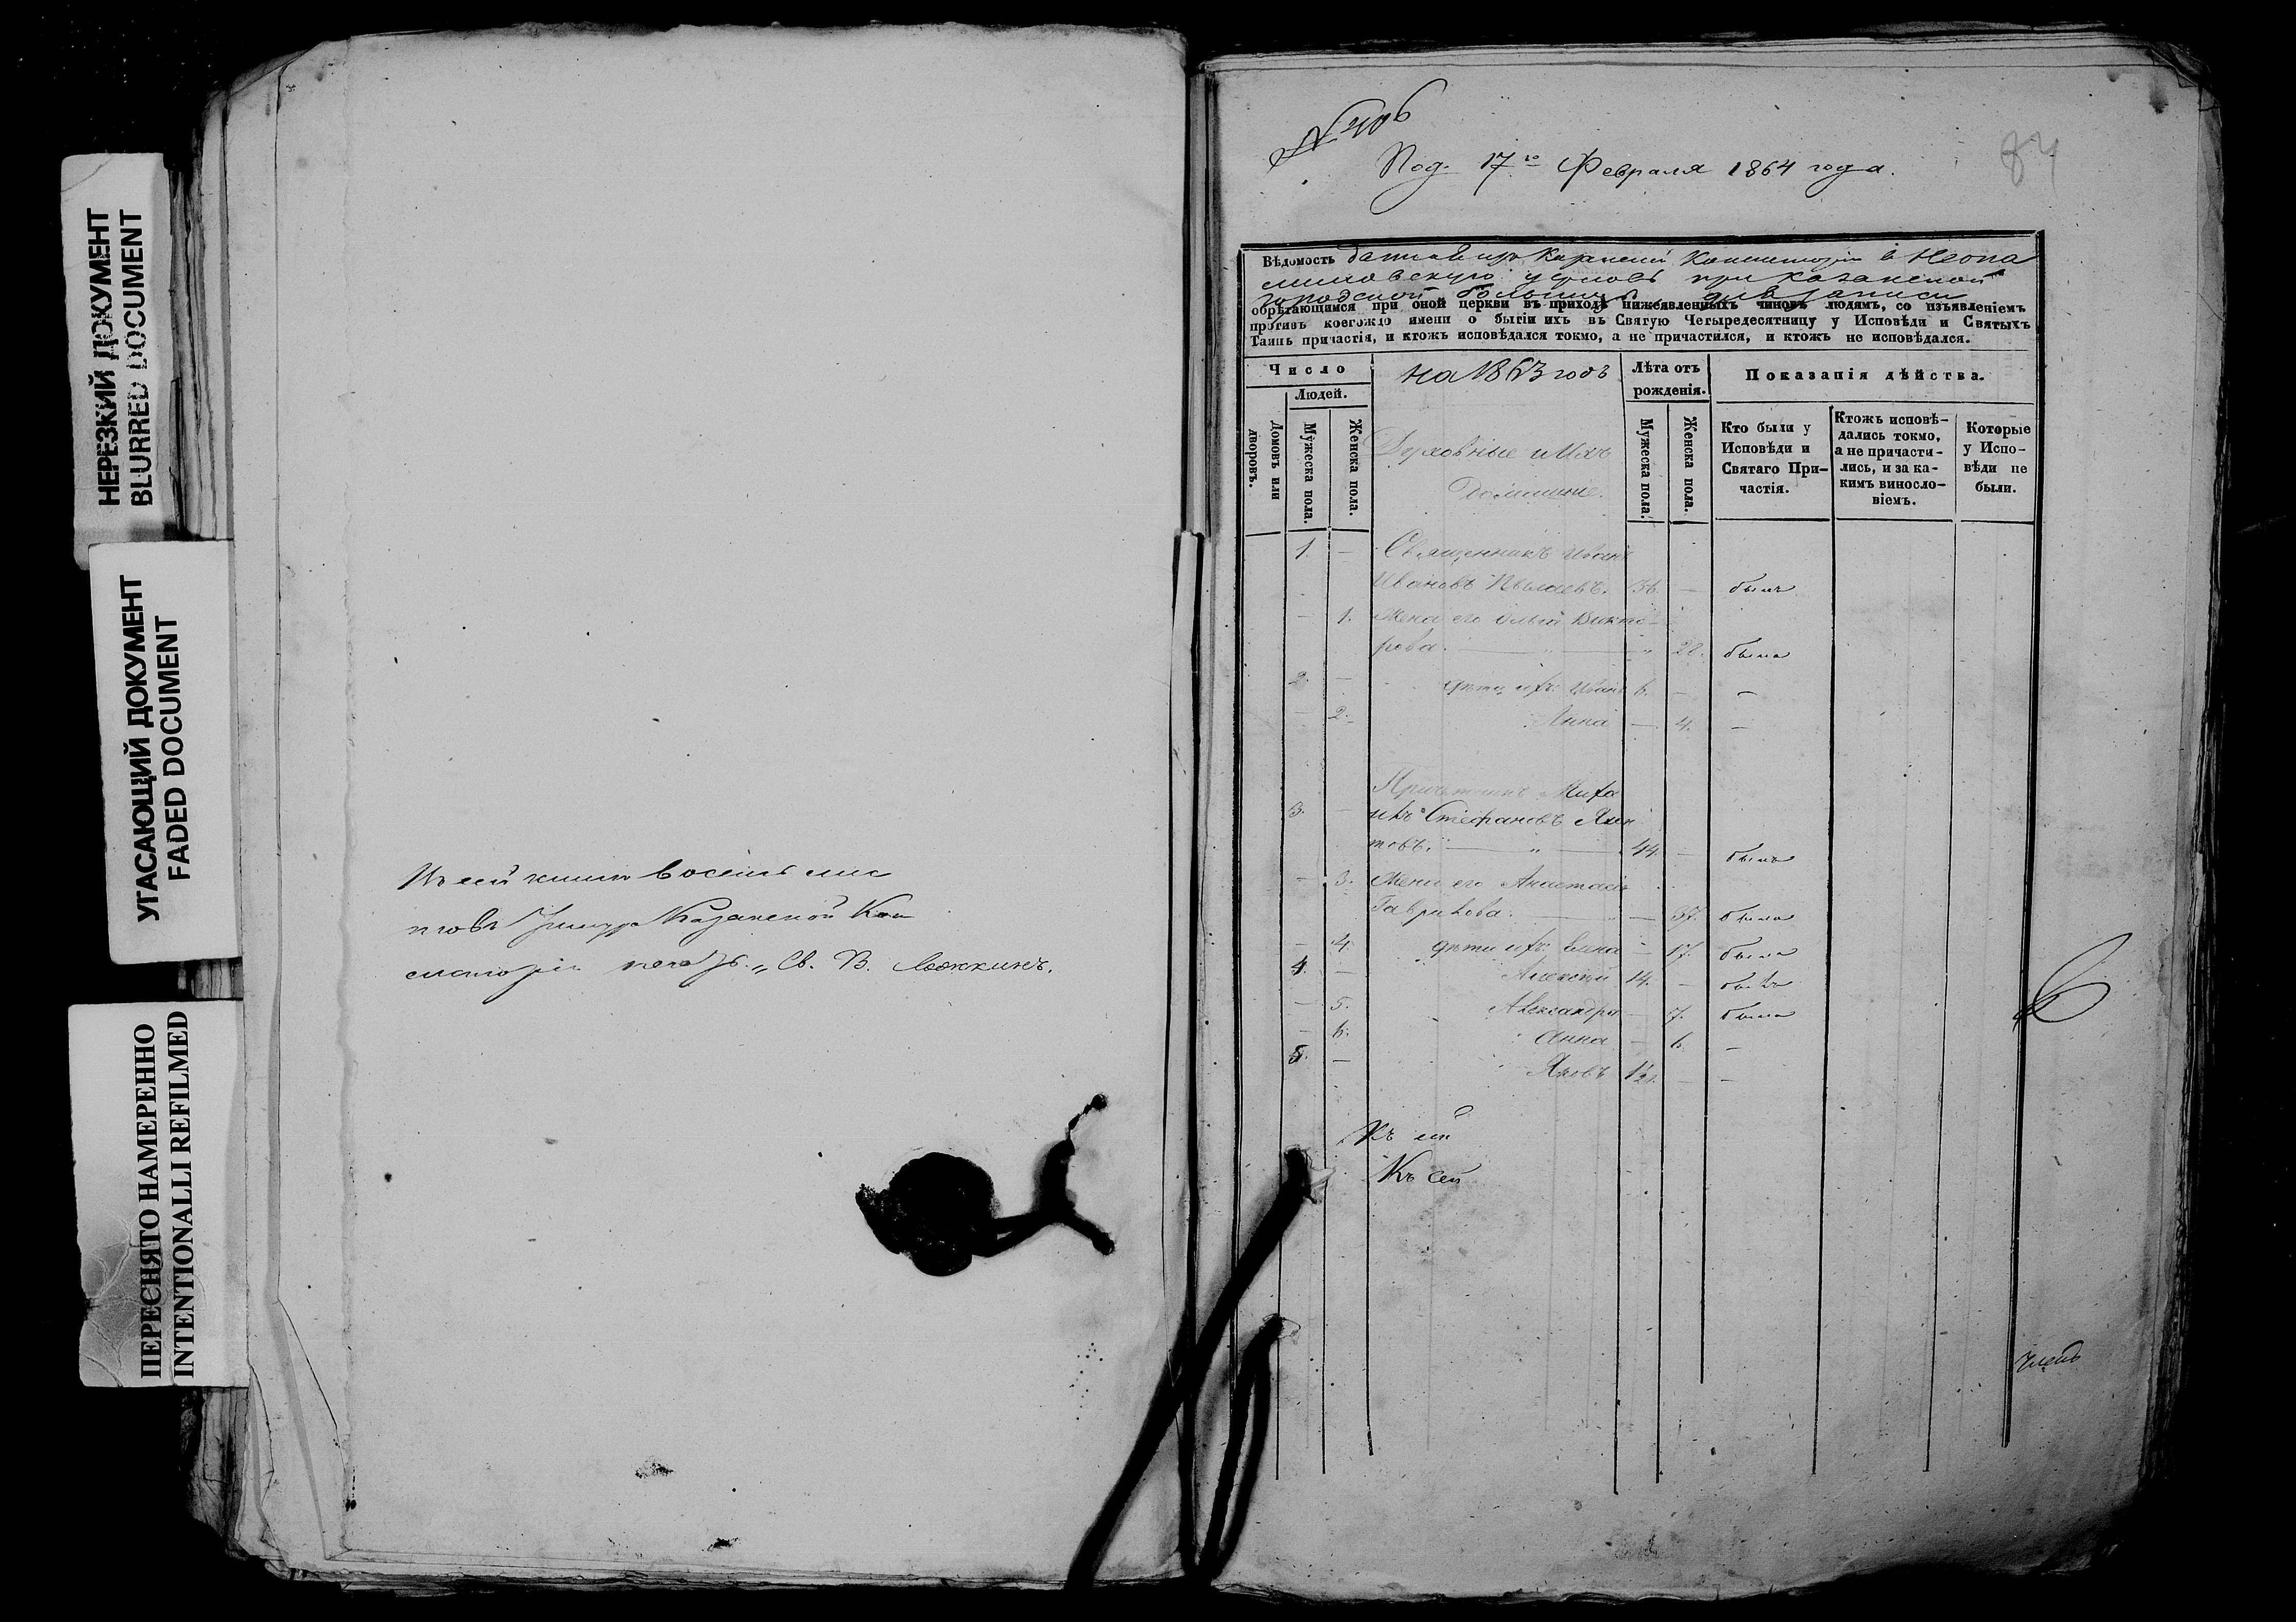 НЕРЕЗКИЙ ДОКУМЕНТ
BLURRED DOCUMENT
УГАСАЮЩИЙ ДОКУМЕНТ
FADED DOCUMENT
ПЕРЕСНЯТО НАМЕРЕННО
INTENTIONALLI REFILMED
Въ сей книгѣ восемь лис
товъ Казанской Кон
систоріи печать. Св. В.
№ 406
Под. 17го Февраля 1864 года.
84
Вѣдомость данная изъ Казанской Консисторіи в
церковь при Казанской
городской больницѣ для записи
обрѣтающимся при оной церкви въ приходѣ нижеявленныхъ чиновъ людямъ, со изъявленіемъ
противъ коегождо имени о бытіи ихъ въ Святую Четыредесятницу у Исповѣди и Святыхъ
Таинъ причастія, и ктожъ исповѣдался токмо, а не причастился, и ктожъ не исповѣдался.
Число
Людей.
Домовъ или дворовъ.
Мужеска пола.
Женска пола.
на 1863 годъ
Духовные и Ихъ
Домашніе.
Лѣта отъ
рожденія.
Мужеска пола.
Женска пола.
Показанія дѣйства.
Кто были у
Исповѣди и
Святаго При-
частія.
Ктожъ исповѣ-
дались токмо,
а не причасти-
лись, и за ка-
кимъ винosло-
віемъ.
Которые
у Испо-
вѣди не
были.
1. — Священникъ Иванъ
Ивановъ 36 — былъ
— 1. Жена его Ольга Викто-
рова. — " — " 28. была
2. — дѣти ихъ: Иванъ 6. — —
— 2. Анна — 4. —
Причетникъ Миха
3. — илъ Стефановъ
товъ. — " — 44. — былъ
— 3. Жена его Анастасія
Гаврилова. — 37. была
— 4. дѣти ихъ: Елена — 17. была
4. — Алексѣй 14. — былъ
— 5. Александра — 7. была
— 6. Анна — 6. —
5. — Яковъ 1½. — —
Къ сей
Къ сей
Членъ